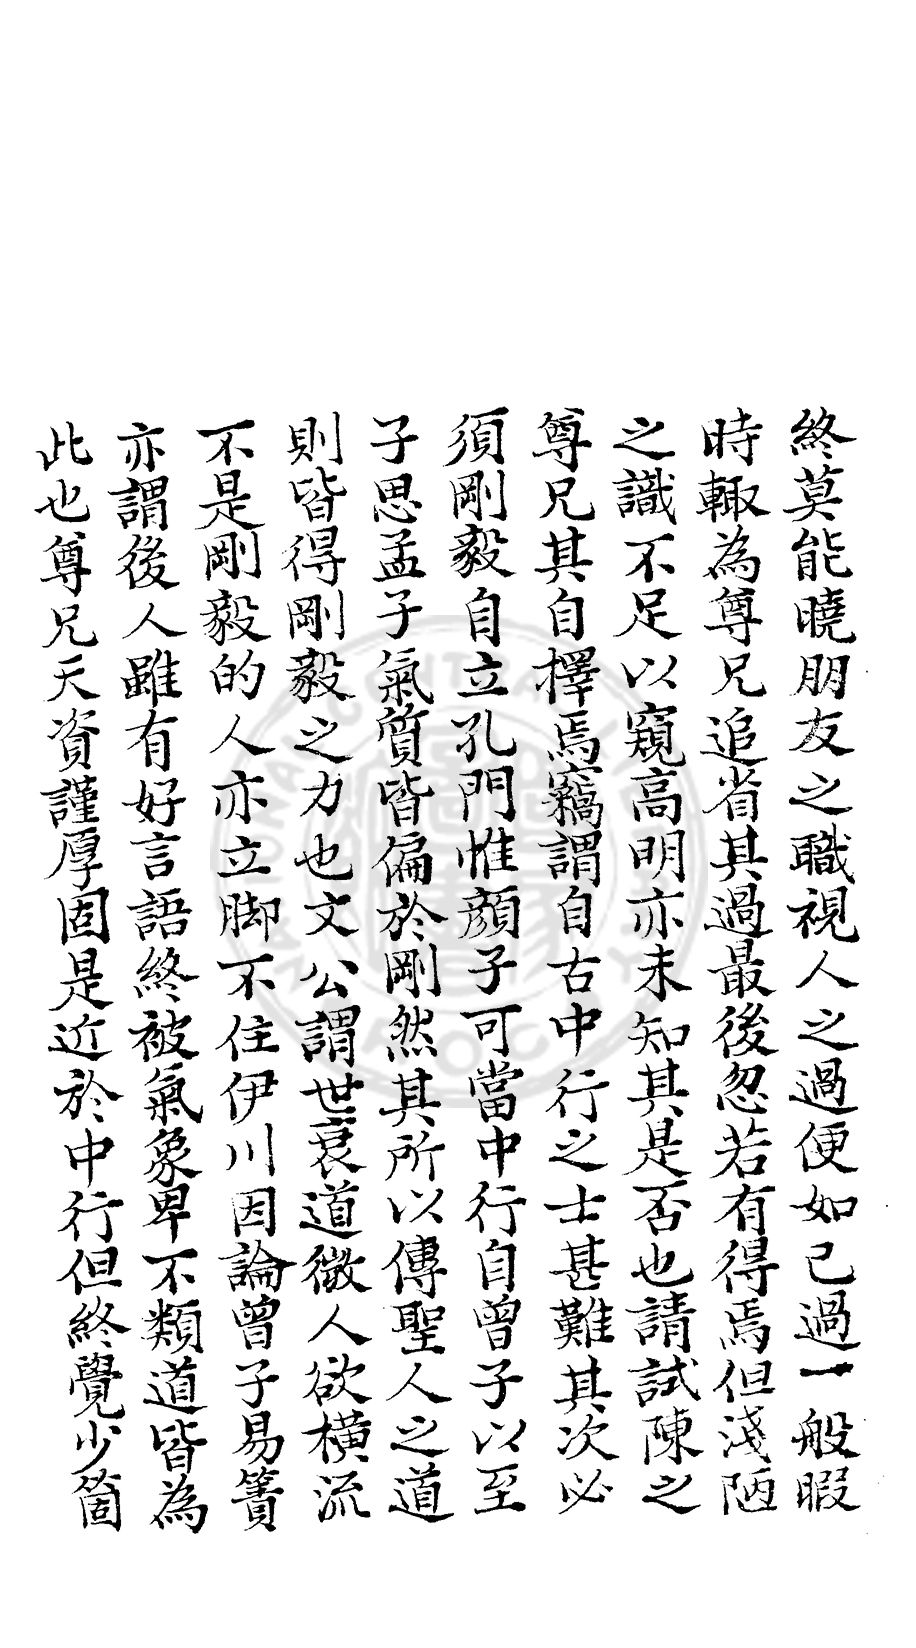 終莫能曉朋友之職視人之過便如己過一般暇
時輙為尊兄追省其過最後忽若有得焉但淺陋
之識不足以窺高明亦未知其是否也請試陳之
尊兄其自擇焉竊謂自古中行之士甚難其次必
須剛毅自立孔門惟顏子可當中行自曾子以至
子思孟子氣質皆偏於剛然其所以傳聖人之道
則皆得剛毅之力也文公謂世衰道微人欲橫流
不是剛毅的人亦立脚不住伊川因論曾子易簀
亦謂後人雖有好言語終被氣象卑不類道皆為
此也尊兄天資謹厚固是近於中行但終覺少箇